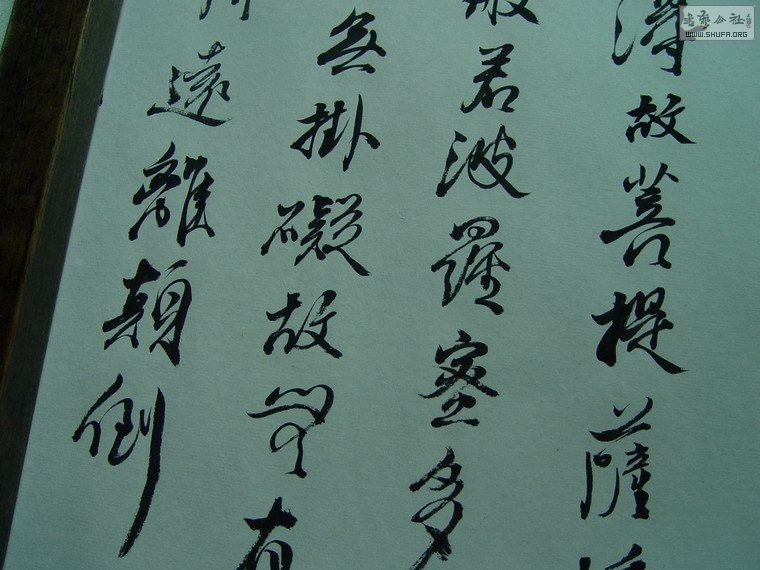 得故菩提薩
般若波羅蜜多
無掛礙故無有
遠離顛倒
WWW.SHUFA.ORG